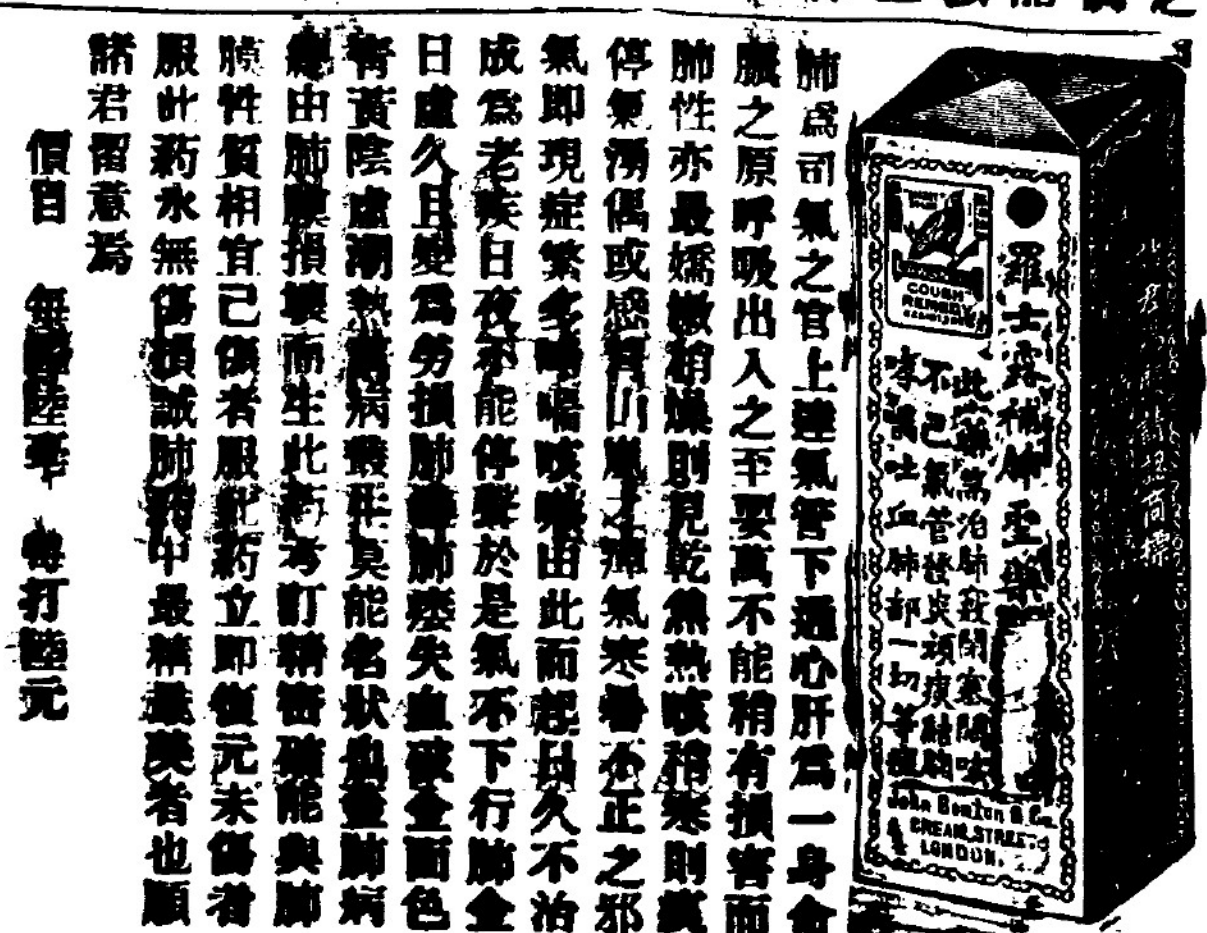 羅士露補肺聖藥
此藥專治肺竅閉塞咳
不已氣管發炎頑痰結胸
哮喘吐血肺部一切等症
COUGH
REMEDY
John & Co.
4 CREAM STREET
LONDON.
肺爲司氣之官上達氣管下通心肝爲一身命
臟之原呼吸出入之至要萬不能稍有損害而
肺性亦最嬌嫩稍燥則見乾焦熱咳稍寒則痰
停氣湧偶或感冒山嵐之瘴氣寒暑不正之邪
氣即現症繁多哮喘咳嗽由此而起日久不治
成爲老疾日夜不能停聲於是氣不下行肺金
日虛久且變爲勞損肺癰肺痿失血破金面色
青黃陰虛潮熱萬病叢生莫能名狀也蓋肺病
總由肺膜損壞而生此葯考訂精密確能與肺
膜性質相宜已傷者服此葯立即復元未傷者
服此葯永無傷損誠肺葯中最精最美者也願
諸君留意焉
價目 每陸毫 每打陸元